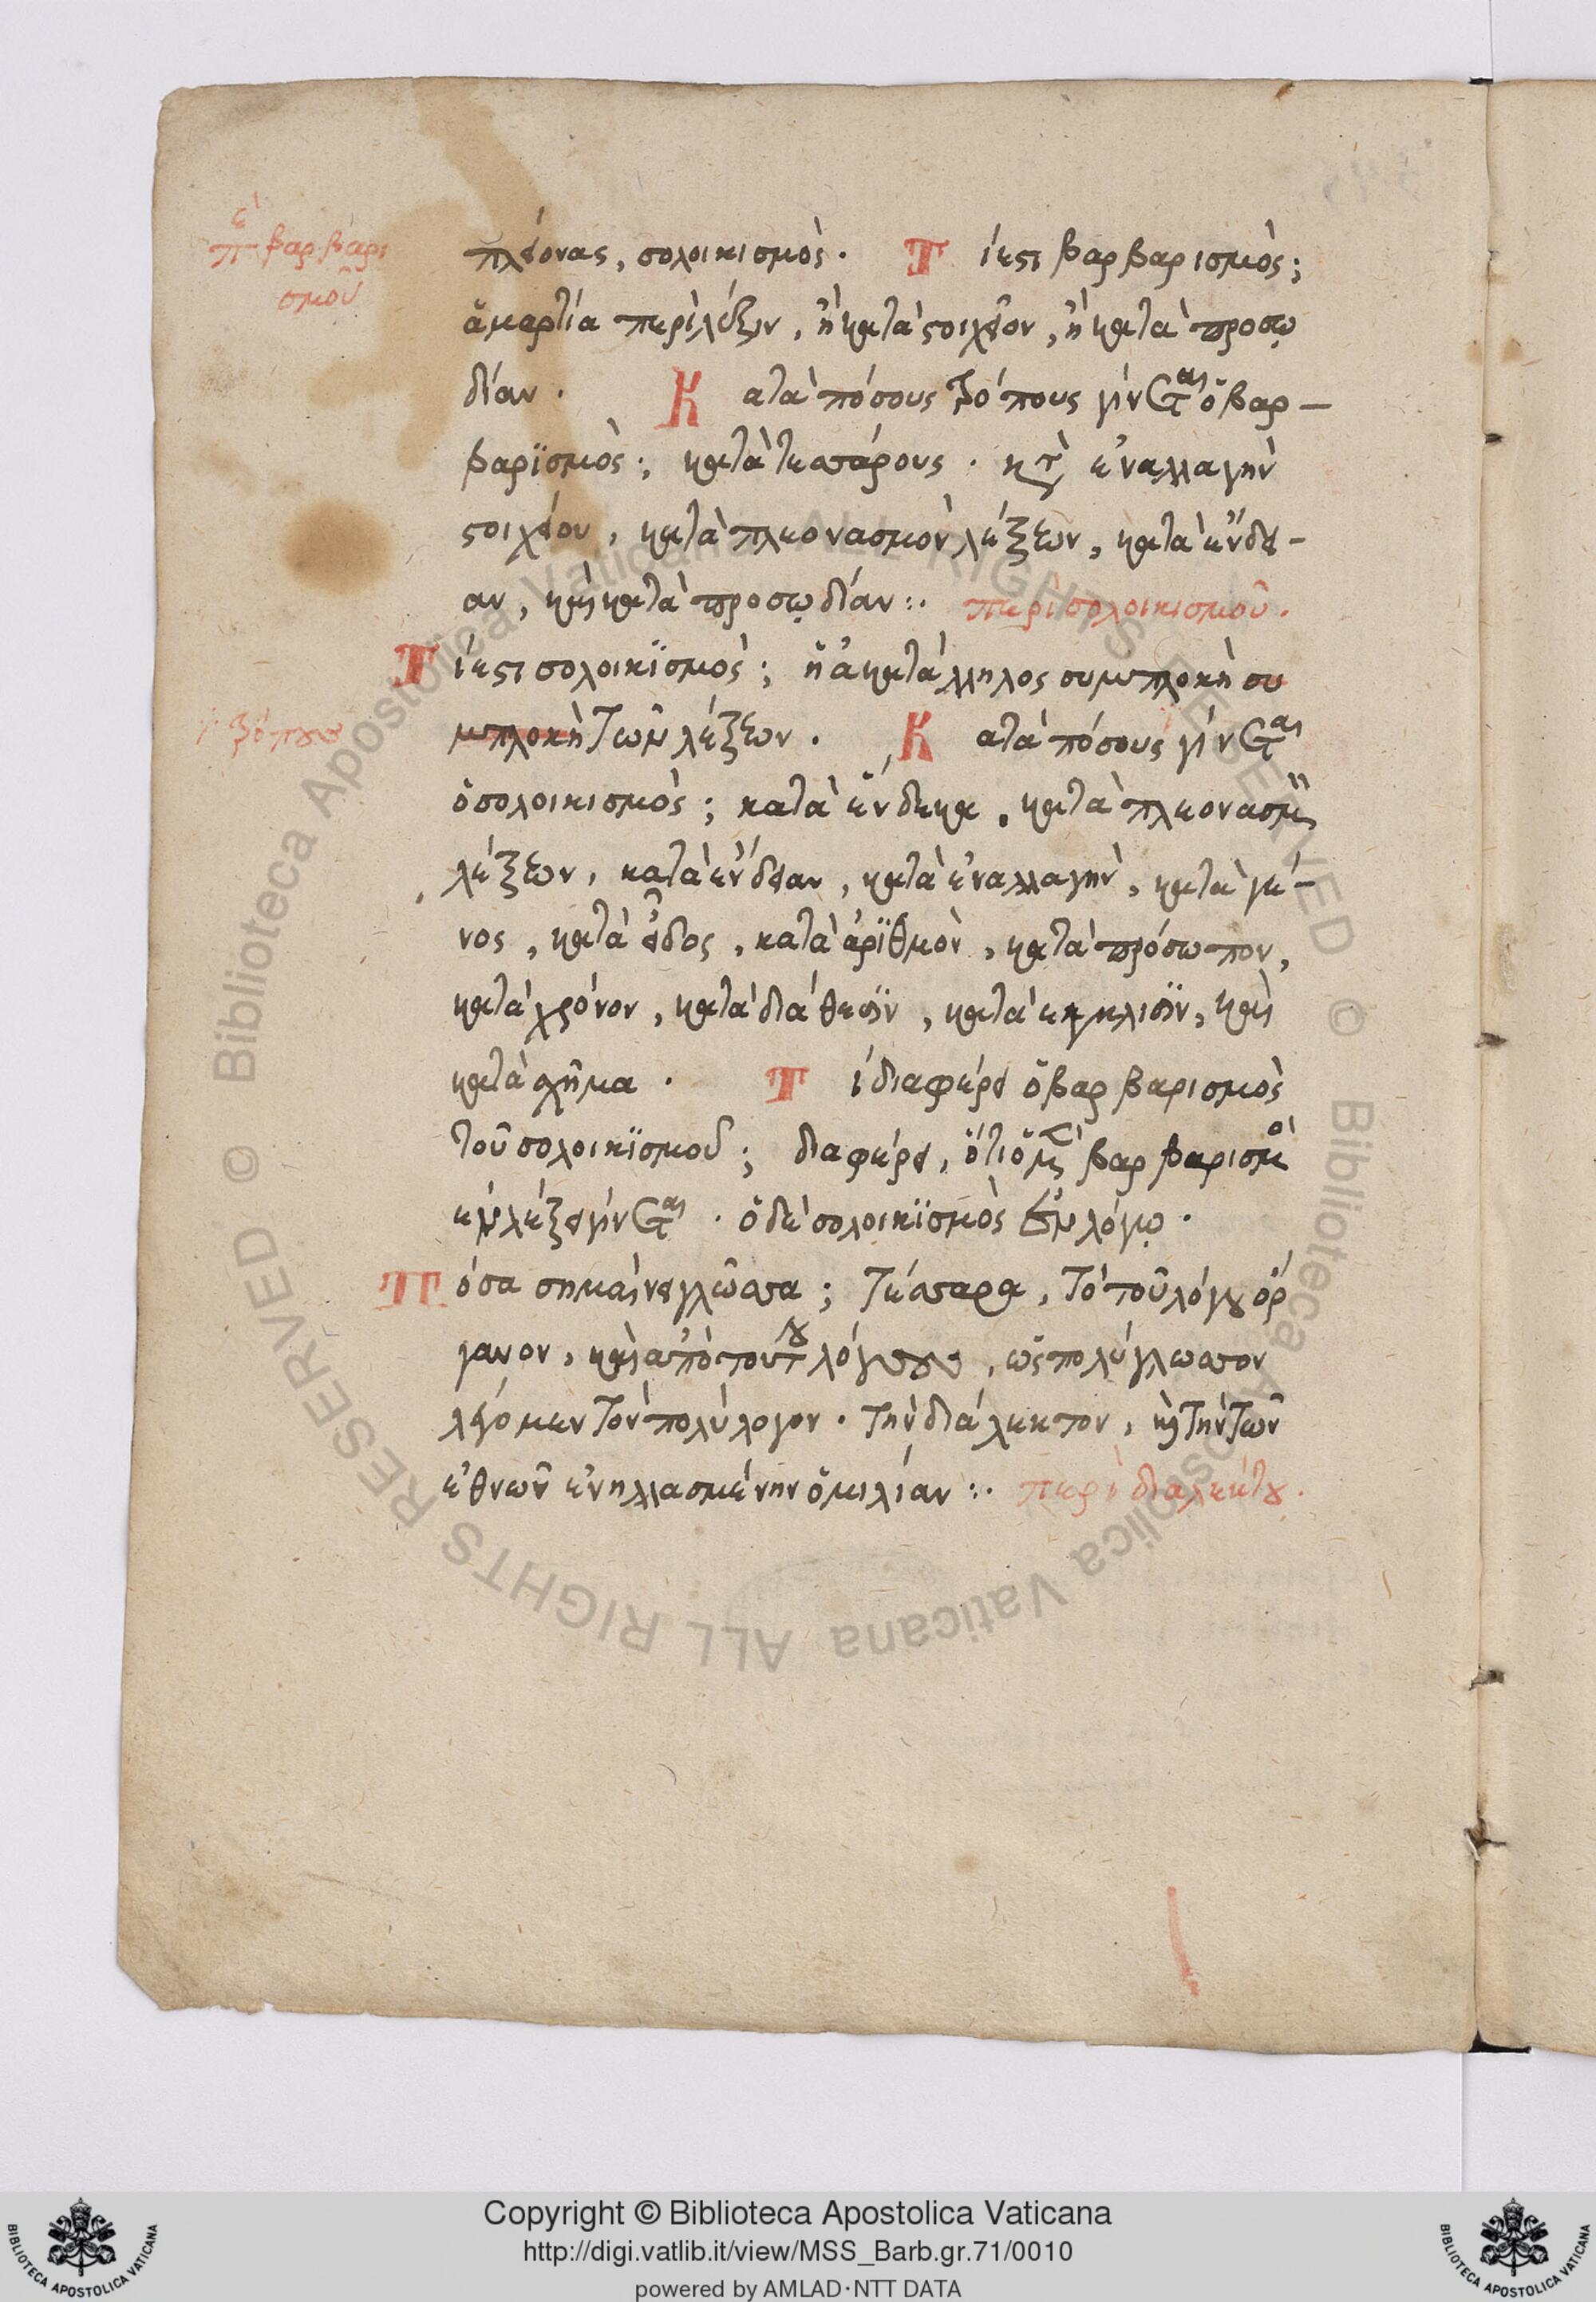 περὶ βαρβαρι
σμοῦ
πλείονας, σολοικισμὸς. Τ ίεστι βαρβαρισμὸς;
ἁμαρτία περὶ λέξιν, ἢ κατὰ στοιχεῖον, ἢ κατὰ προσῳ
δίαν. Κ ατὰ πόσους τρόπους γίνεται ὁ βαρ-
βαρϊσμὸς; κατὰ τεσσάρους. κατὰ ἐναλλαγὴν
στοιχείου, κατὰ πλεονασμὸν λέξεων, κατὰ ἔνδει-
αν, καὶ κατὰ προσῳδίαν:. περὶ σολοικισμοῦ.
Τ ίεστι σολοικϊσμὸς; ἡ ἀκατάλληλος συμπλοκὴ συ
μπλοκὴ τῶν λέξεων. Κ ατὰ πόσους γίνεται
τρόπους
ὁ σολοικισμὸς; κατὰ ἕνδεκα. κατὰ πλεονασμὸν
λέξεων, κατὰ ἔνδειαν, κατὰ ἐναλλαγὴν, κατὰ γέ-
νος, κατὰ εἶδος, κατὰ ἀρϊθμὸν, κατὰ πρόσωπον,
κατὰ χρόνον, κατὰ διάθεσϊν, κατὰ ἔγκλισϊν, καὶ
κατὰ σχῆμα. Τ ί διαφέρει ὁ βαρβαρισμὸς
τοῦ σολοικϊσμοῦ; διαφέρει, ὅτι ὁ μὲν βαρβαρισμὸς
ἐν λέξει γίνεται. ὁ δὲ σολοικϊσμὸς ἐν λόγῳ.
Π όσα σημαίνει γλῶσσα; τέσσαρα, τὸ τοῦ λόγου ὄρ
γανον, καὶ αὐτὸ τοῦτο λόγους, ὡς πολύγλωσσον
λέγομεν τὸν πολύλογον. τὴν διάλεκτον, καὶ τὴν τῶν
ἐθνῶν ἐνηλλασμένην ὁμιλίαν:. περὶ διαλέκτου.
Copyright © Biblioteca Apostolica Vaticana
http://digi.vatlib.it/view/MSS_Barb.gr.71/0010
powered by AMLAD·NTT DATA
© Biblioteca Apostolica Vaticana ALL RIGHTS RESERVED © Biblioteca Apostolica Vaticana ALL RIGHTS RESERVED
BIBLIOTECA APOSTOLICA VATICANA
BIBLIOTECA APOSTOLICA VATICANA